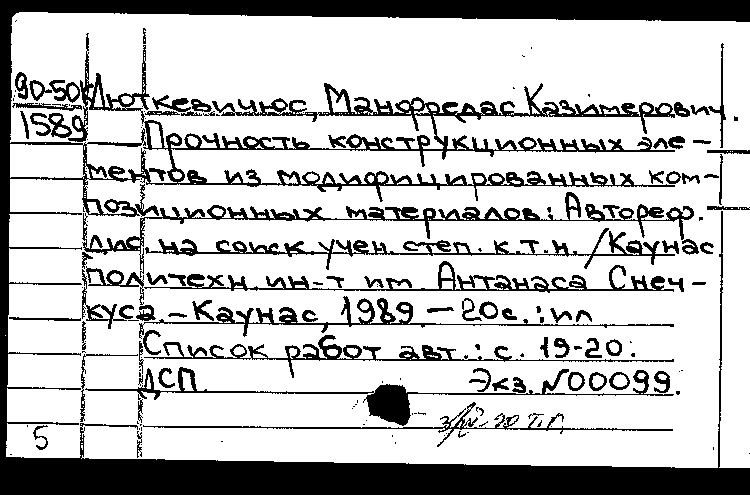 90-50К Люткевичюс, Манфредас Казимерович.
1589 Прочность конструкционных эле-
ментов из модифицированных ком-
позиционных материалов: Автореф.
дис. на соиск. учен. степ. к.т.н. /Каунас.
политехн. ин-т им. Антанаса Снеч-
куса. – Каунас, 1989. – 20с.: ил.
Список работ авт.: с. 19-20.
ДСП. Экз. №00099.
5